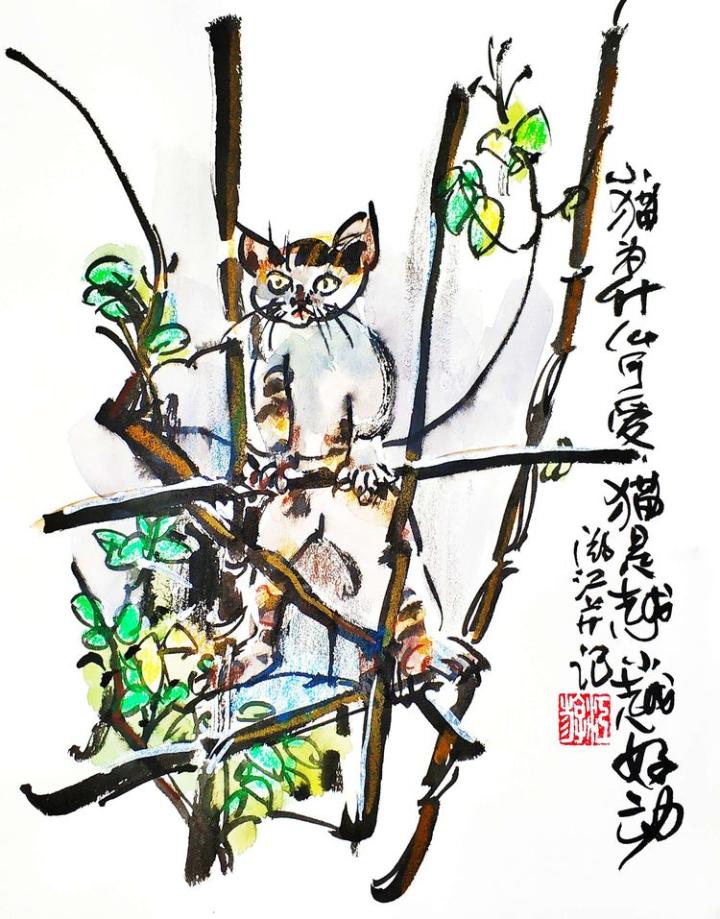 小猫为什么可爱、猫是越小越好动
江并记